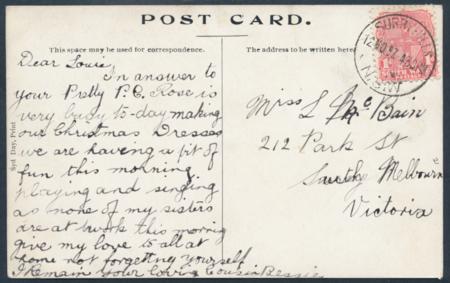 POST CARD.
This space may be used for correspondence.
The address to be written here
Dear Louie
In answer to
your Pretty P.C. Rose is
very busy to-day making
our Christmas Dresses
we are having a bit of
fun this morning
playing and singing
as none of my sisters
are at work this morning
give my love to all at
home not forgetting yourself
I remain your loving Cousin Bessie
Syd Day, Print
Miss L McBain
212 Park St
South Melbourne
Victoria
SURRY HILLS
N.S.W